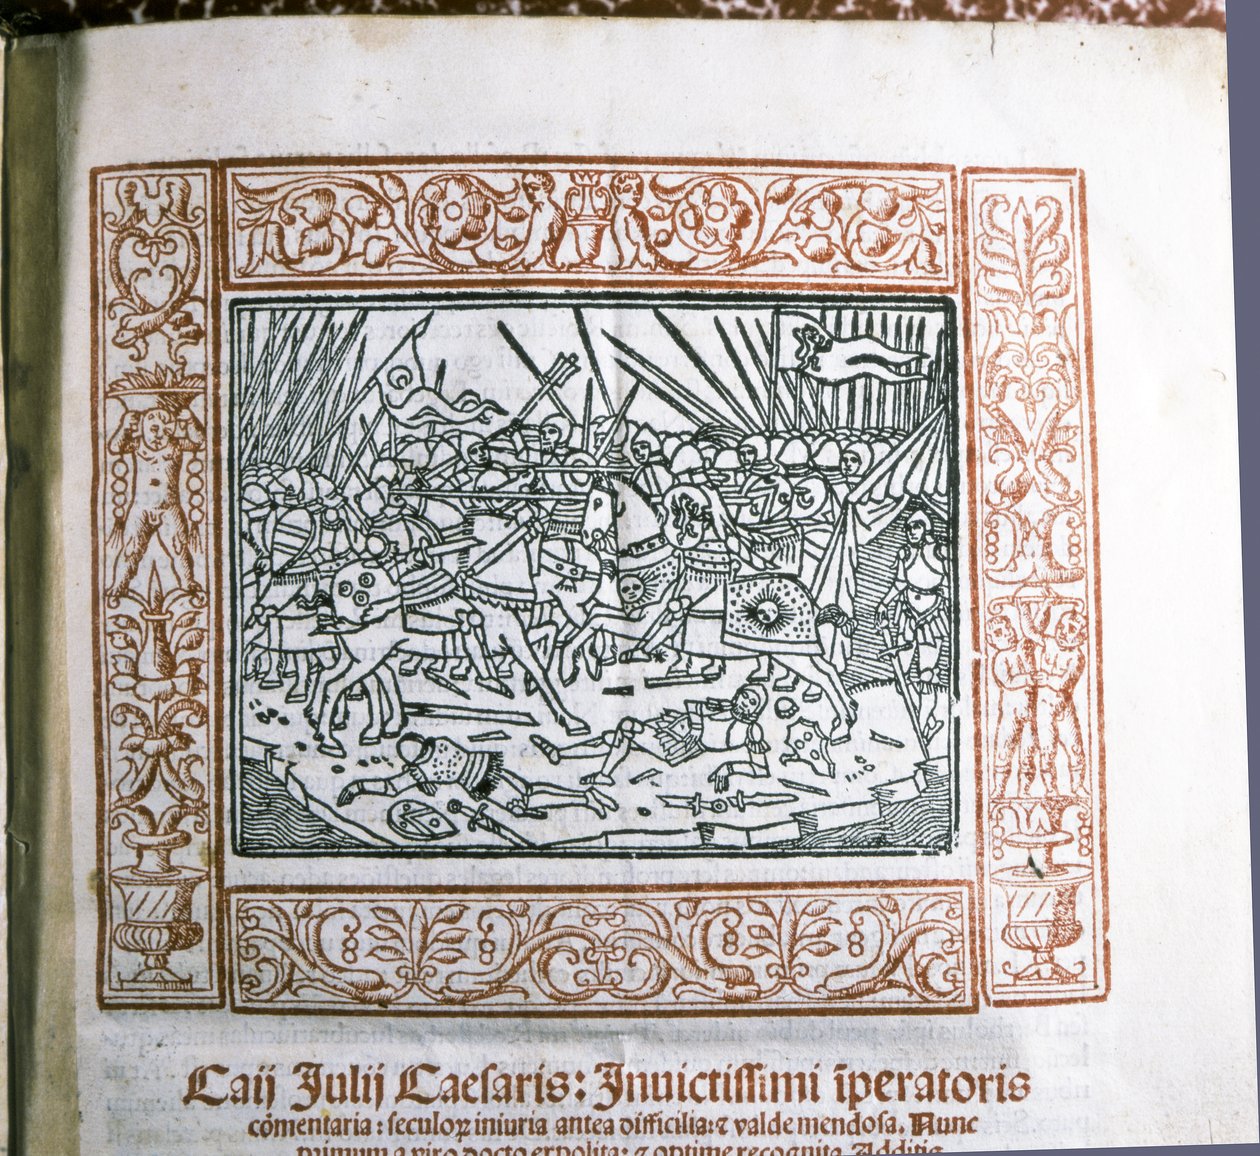 Caij Julij Caesaris: Inuictissimi īperatoris
cōmentaria: seculoꝝ iniuria antea difficilia: ⁊ valde mendosa. Nunc
primum a viro docto expolita: ⁊ optime recognita. Additis